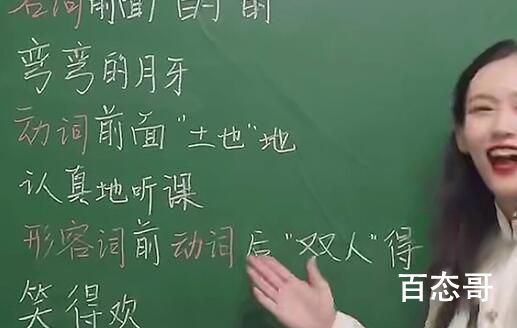 名词前面"白勺"的
弯弯的月牙
动词前面"土也"地
认真地听课
形容词前动词后"双人"得
百态哥
笑得欢